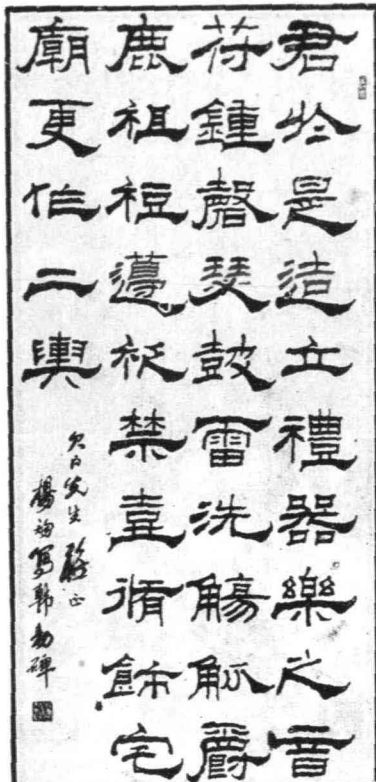 君於是造立禮器樂之音
符鍾磬瑟鼓雷洗觴觚爵
鹿柤梪籩柉禁壺脩飾宅
廟更作二輿
先生 正
楊 寫韓勑碑